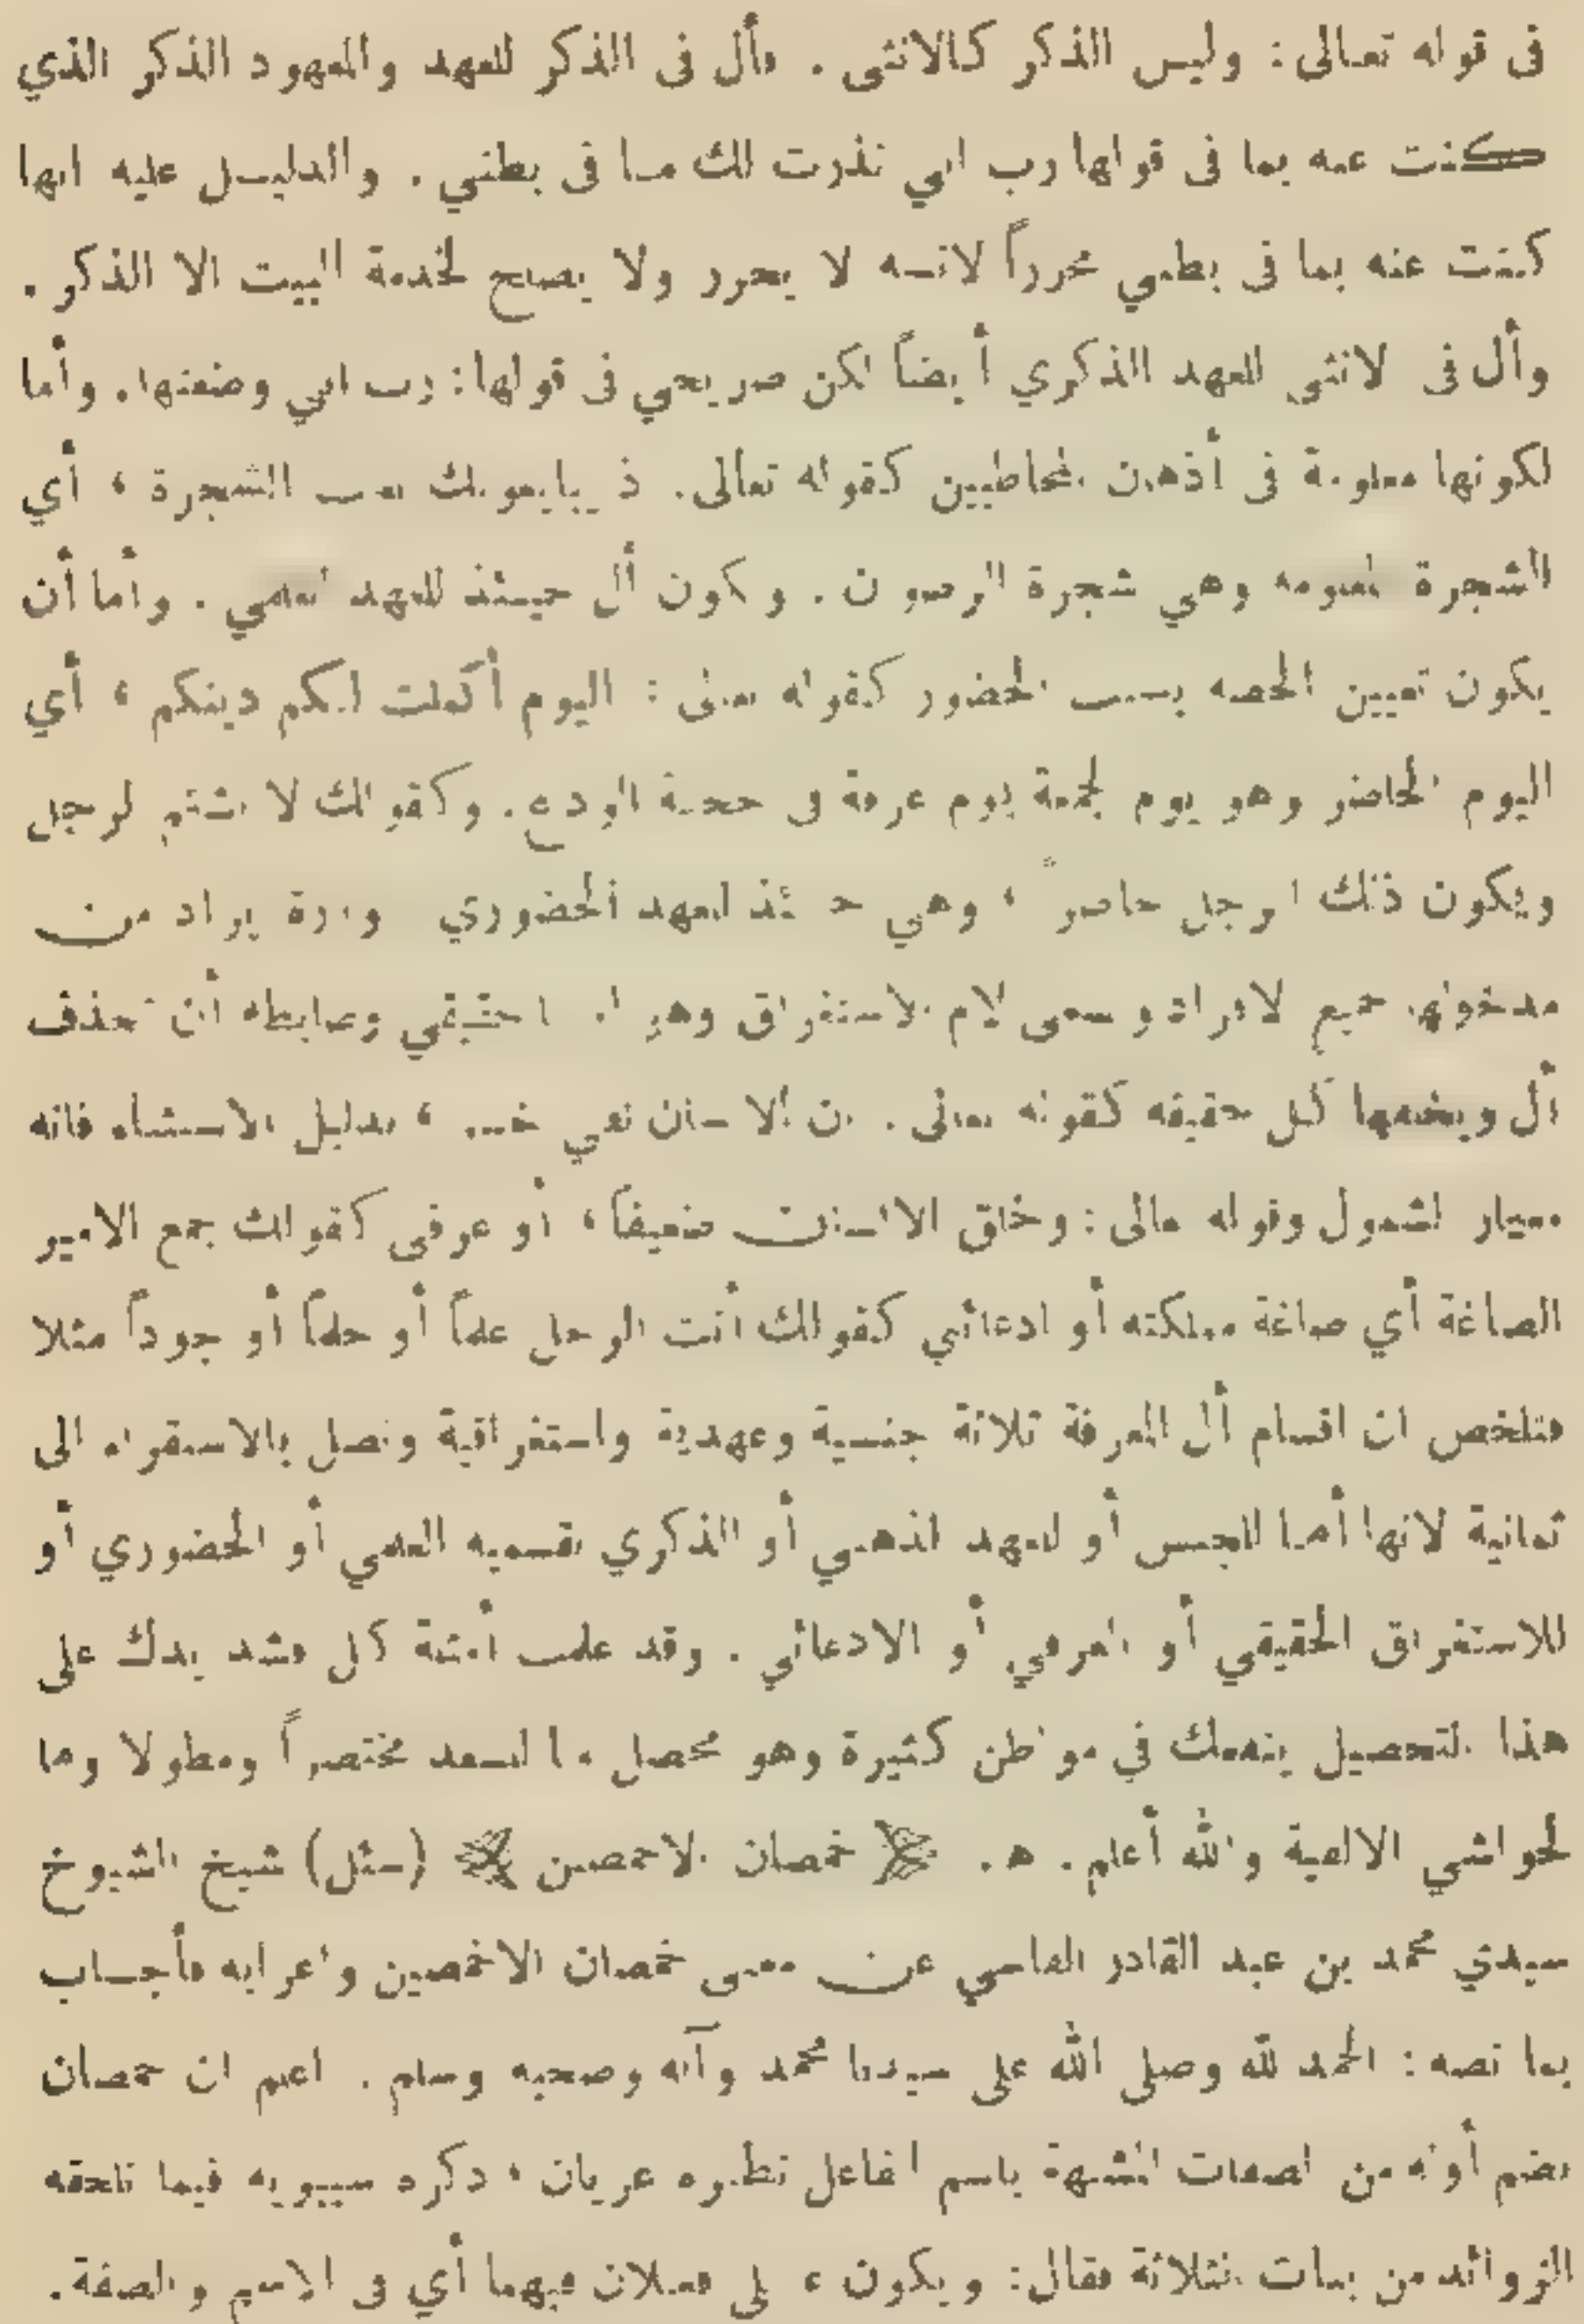 فى قوله تعالى: وليس الذكر كالانثى. فأل فى الذكر للعهد والمعهود الذكر الذي
كنت عنه بما فى قولها رب اني نذرت لك مـا فى بطني. والدليـل عليه انها
كنت عنه بما فى بطني محرراً لانـه لا يحرر ولا يصلح لخدمة البيت الا الذكر.
وأل فى الانثى للعهد الذكري أيضاً لكن صريحي فى قولها: رب اني وضعتها. وأما
لكونها معلومة فى أذهان المخاطبين كقوله تعالى. اذ يبايعونك تحت الشجرة، أي
الشجرة المعلومة وهي شجرة الرضوان. وتكون أل حينئذ للعهد العلمي. وأما أن
يكون تعيين الحصة بسبب الحضور كقوله تعالى: اليوم أكملت لكم دينكم، أي
اليوم الحاضر وهو يوم الجمعة يوم عرفة فى حجة الوداع. وكقولك لا تشتم الرجل
ويكون ذلك الرجل حاضراً، وهي حينئذ للعهد الحضوري وتارة يراد من
مدخولها جميع الافراد وتسمى لام الاستغراق وهو اما حقيقي وضابطه أن تحذف
أل ويخلفها كل حقيقة كقوله تعالى. ان الانسان لفي خسر، بدليل الاستثناء فانه
معيار الشمول وقوله تعالى: وخلق الانسان ضعيفاً، أو عرفى كقولك جمع الامير
الصاغة أي صاغة مملكته أو ادعائي كقولك أنت الرجل علماً أو حلماً أو جوداً مثلا
فتلخص ان اقسام أل المعرفة ثلاثة جنسية وعهدية واستغراقية وتصل بالاستقراء الى
ثمانية لانها أمـا للجنس أو للعهد الذهني أو الذكري بقسميه العلمي أو الحضوري أو
للاستغراق الحقيقي أو العرفي أو الادعائي. وقد علمت أمثلة كل فشد يدك على
هذا التحصيل ينفعك في مواطن كثيرة وهو محصل ما للسعد مختصراً ومطولا وما
لحواشي الالفية والله أعلم. ه. خمصان الاخمصين (سئل) شيخ الشيوخ
سيدي محمد بن عبد القادر الفاسي عن معنى خمصان الاخمصين واعرابه فأجـاب
بما نصه: الحمد لله وصلى الله على سيدنا محمد وآله وصحبه وسلم. اعلم ان خمصان
بضم أوله من الصفات المشبهة باسم الفاعل نظيره عريان، ذكره سيبويه فيما تلحقه
الزوائد من بنات الثلاثة فقال: ويكون على فعلان فيهما أي فى الاسم والصفة.